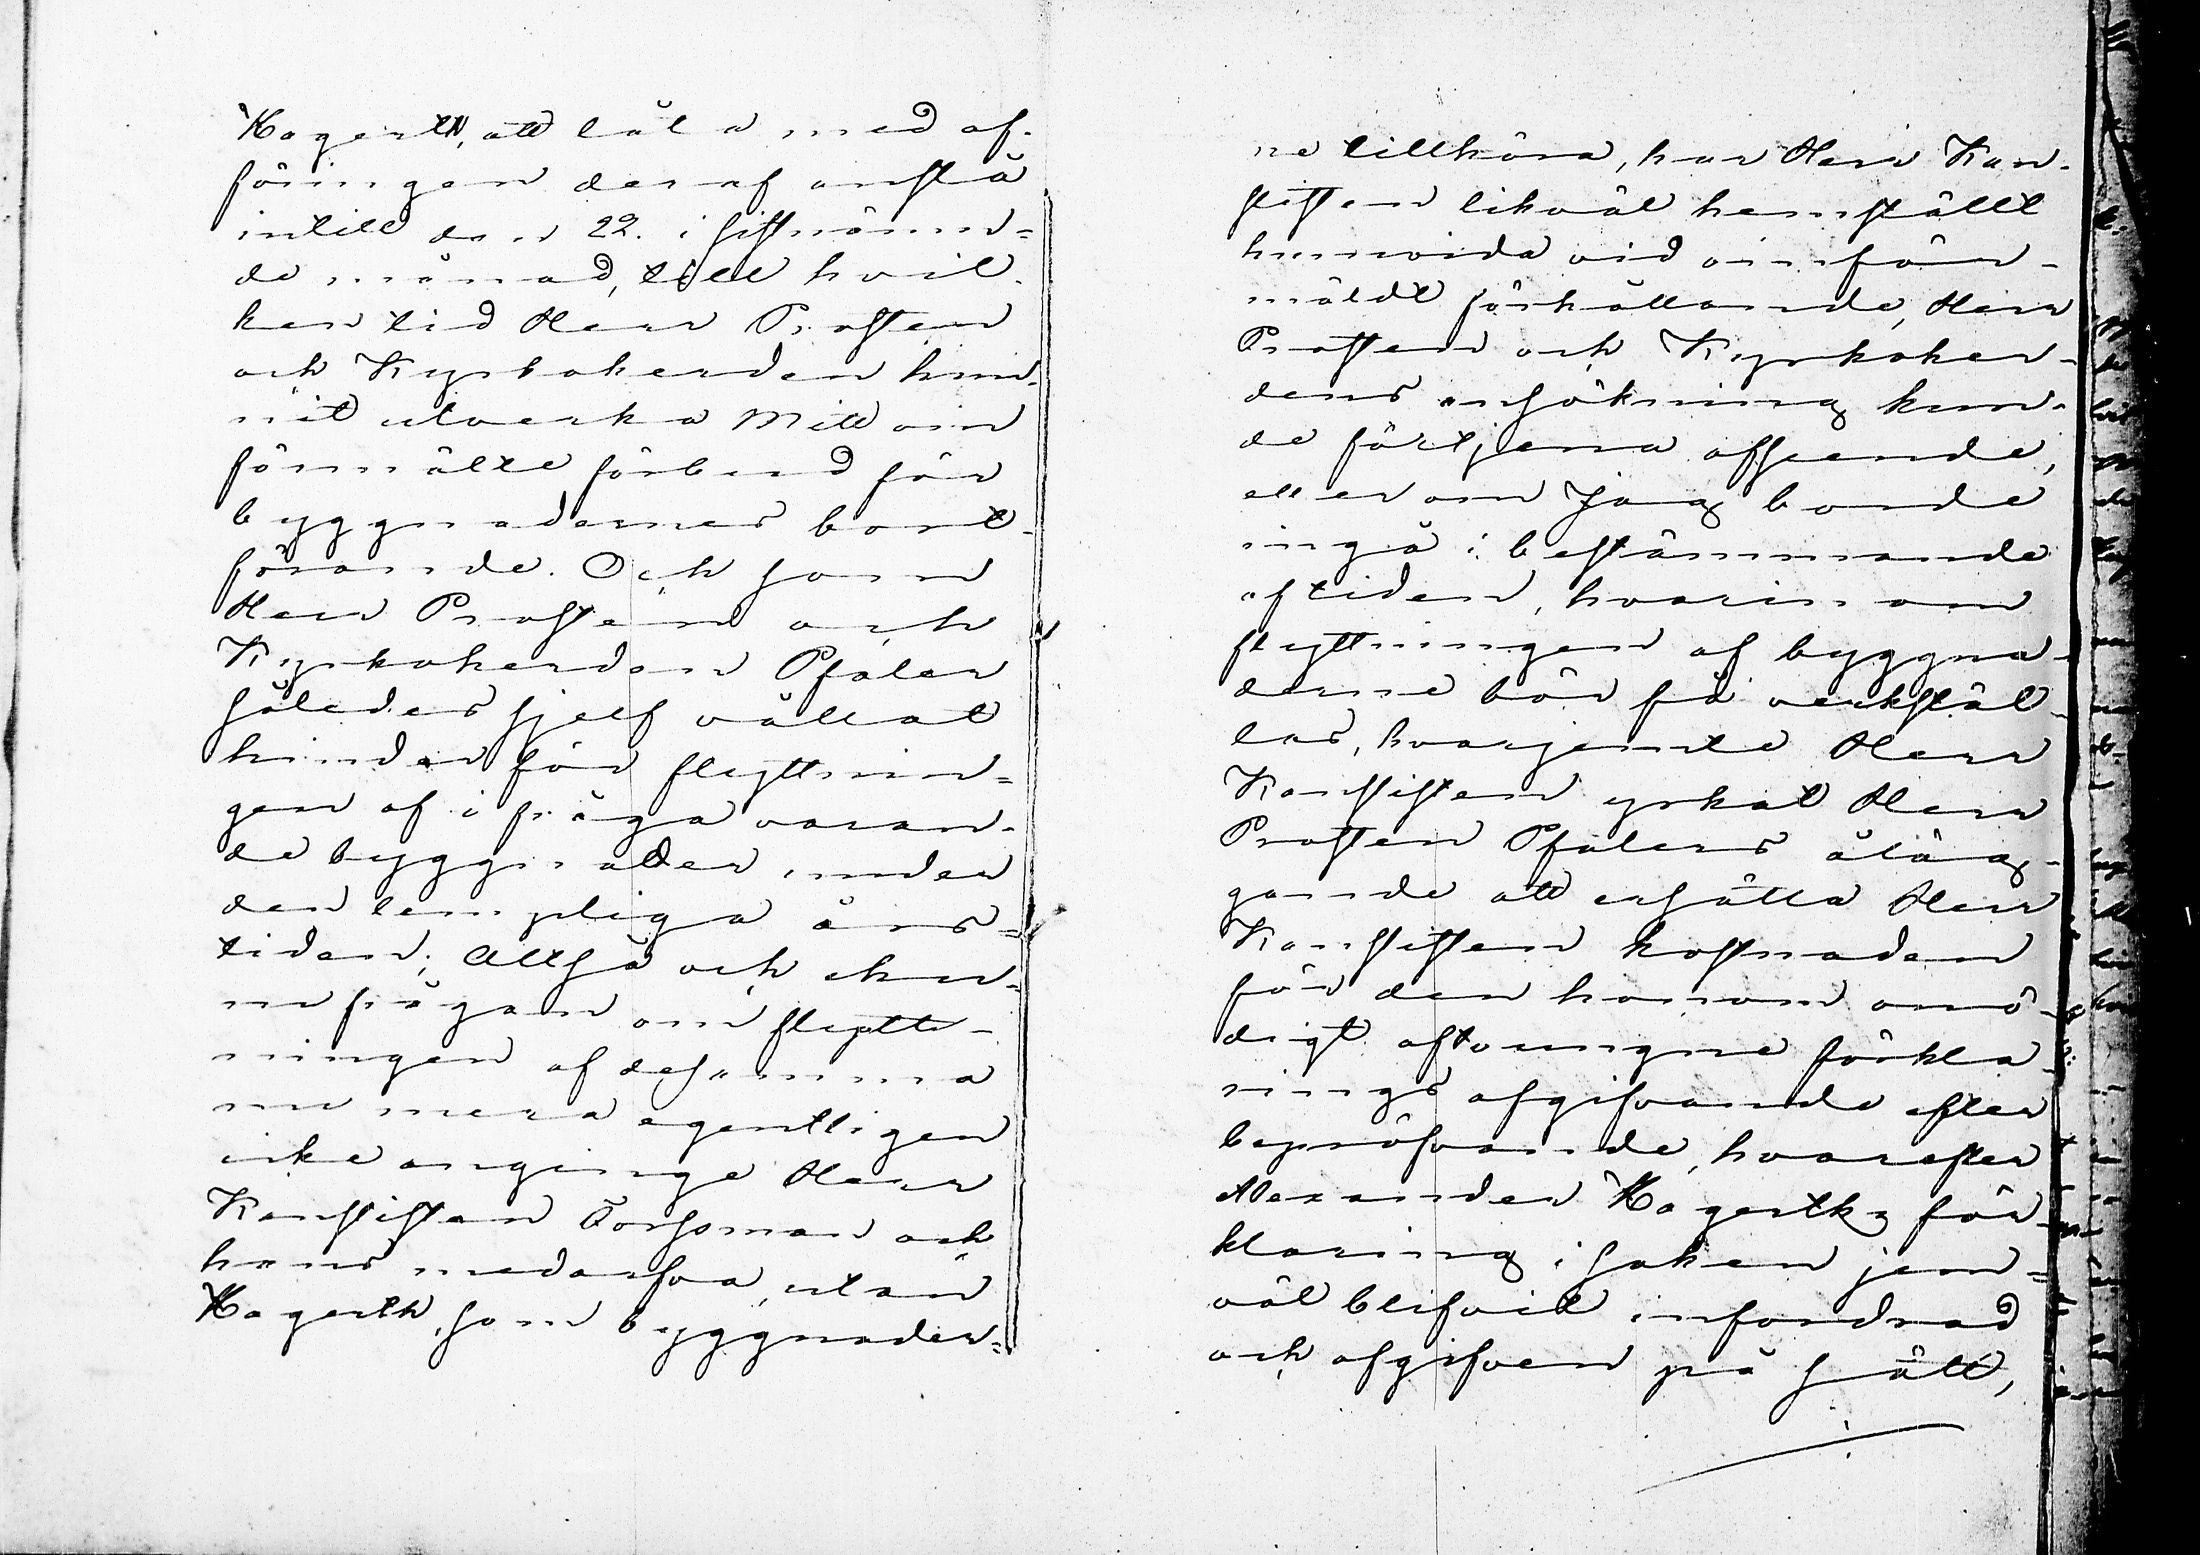 Hagerth, att låta med af-
föringen deraf anstå
intill den 22. i sistnämn=
de månad, till hvil-
ken tid Herr Prosten
och Kyrkoherden hun-
nit utverka Mitt om
förmälte förbud för
byggnadernes bort-
förande. Och som
Herr Prosten och
Kyrkoherden Pfaler
således sjelf vållat
hinder för flyttnin=
gen af i fråga varan-
de byggnader under
den lempliga års=
tiden; Alltså och ehu=
ru frågan om flytt-
ningen af desamma
nu mera egentligen
icke anginge Herr
Kanslisten Forssman och
hans medarfva, utan
Hagerth, som byggnader=
ne tillhöra, har Herr Kan-
slisten likväl hemställt
huruvida vid omför-
mäldt förhållande, Herr
Prosten och Kyrkoher-
dens ansökning kun-
de förtjena afseende,
eller om Jag borde
ingå i bestämmande
af tiden, hvarinom
flyttningen af byggna-
derne bör få verkstäl-
las, hvarjemte Herr
Kanslisten yrkat Herr
Prosten Pfalers åläg-
gande att ersätta Herr
Kanslisten kostnaden
för den honom onö-
digt aftvungne förkla-
rings afgifvande efter
bepröfvande, hvarefter
Alexander Hagerths för-
klaring i saken jem=
väl blifvit infordrad
och afgifven på sätt,